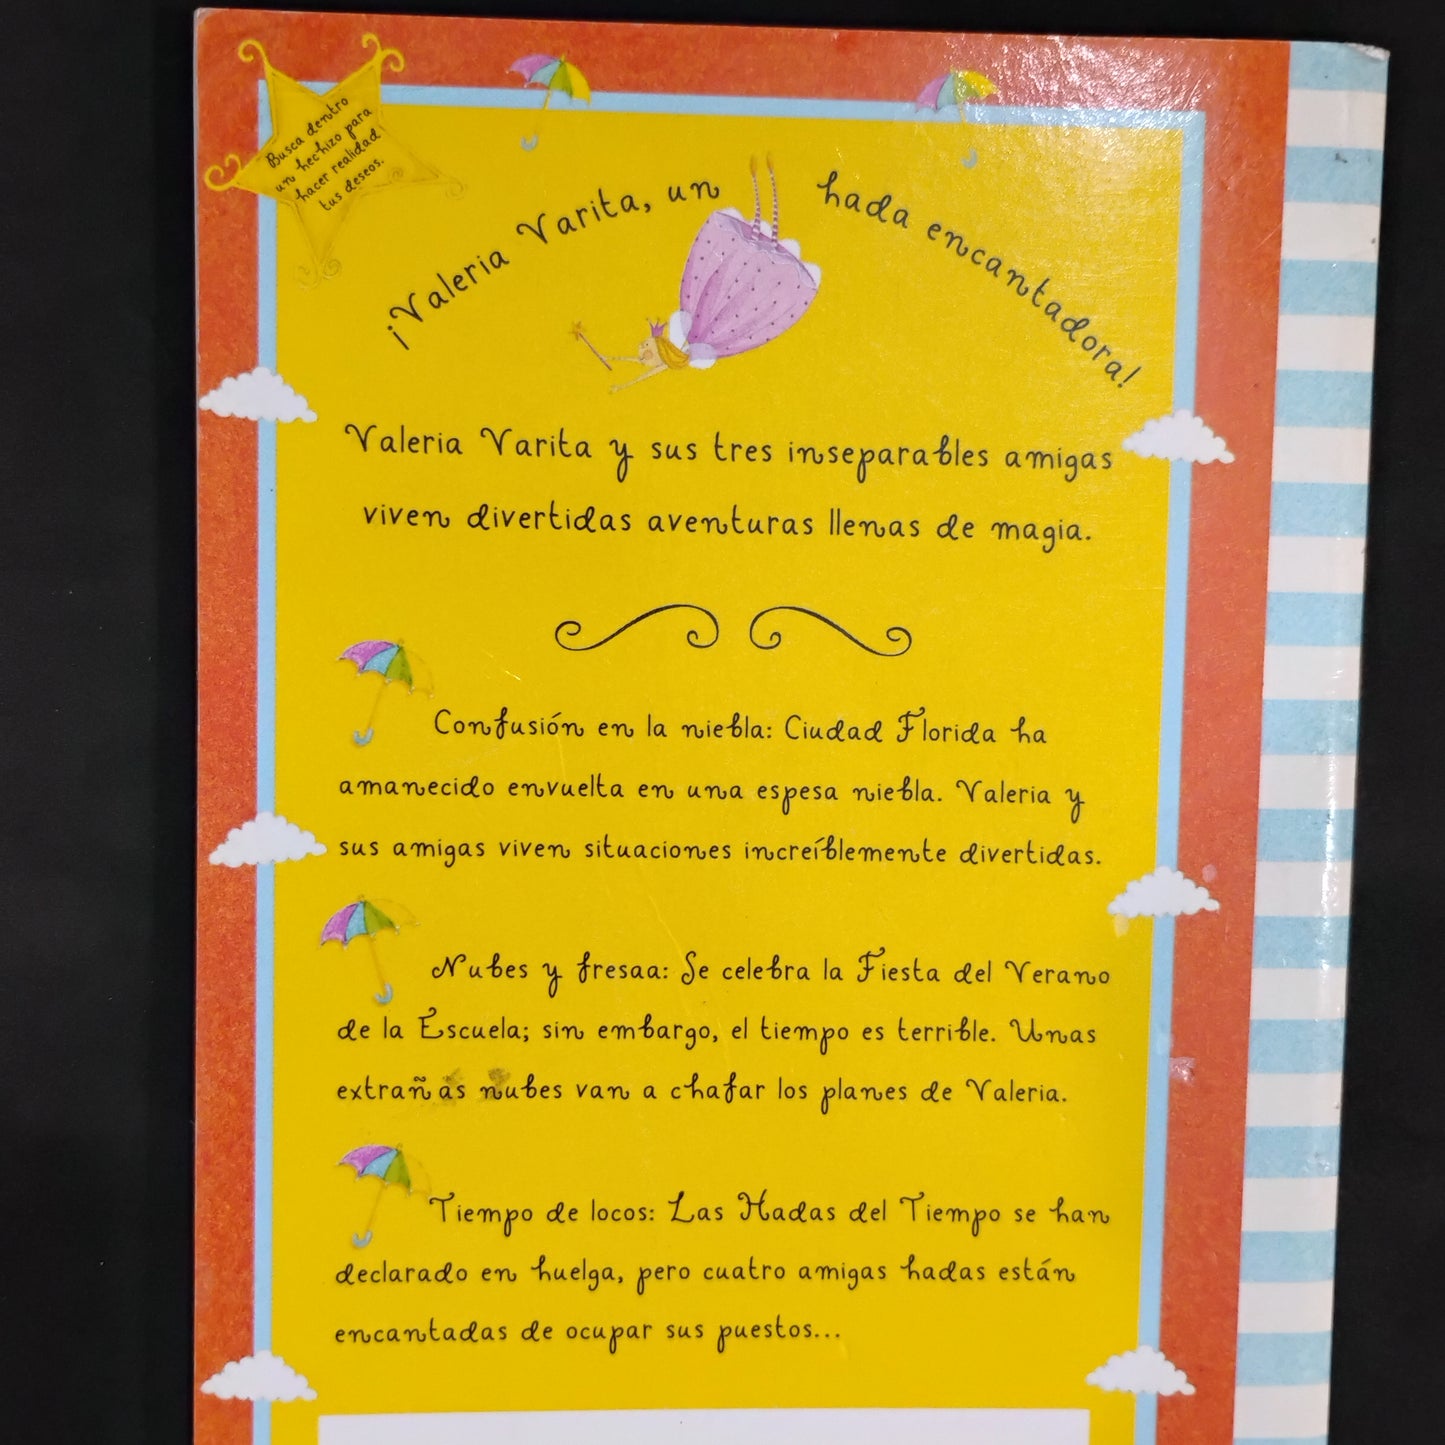 Busca dentro
un hechizo para
hacer realidad
tus deseos.
¡Valeria Varita, un hada encantadora!
Valeria Varita y sus tres inseparables amigas
viven divertidas aventuras llenas de magia.
Confusión en la niebla: Ciudad Florida ha
amanecido envuelta en una espesa niebla. Valeria y
sus amigas viven situaciones increíblemente divertidas.
Nubes y fresaa: Se celebra la Fiesta del Verano
de la Escuela; sin embargo, el tiempo es terrible. Unas
extrañas nubes van a chafar los planes de Valeria.
Tiempo de locos: Las Hadas del Tiempo se han
declarado en huelga, pero cuatro amigas hadas están
encantadas de ocupar sus puestos...